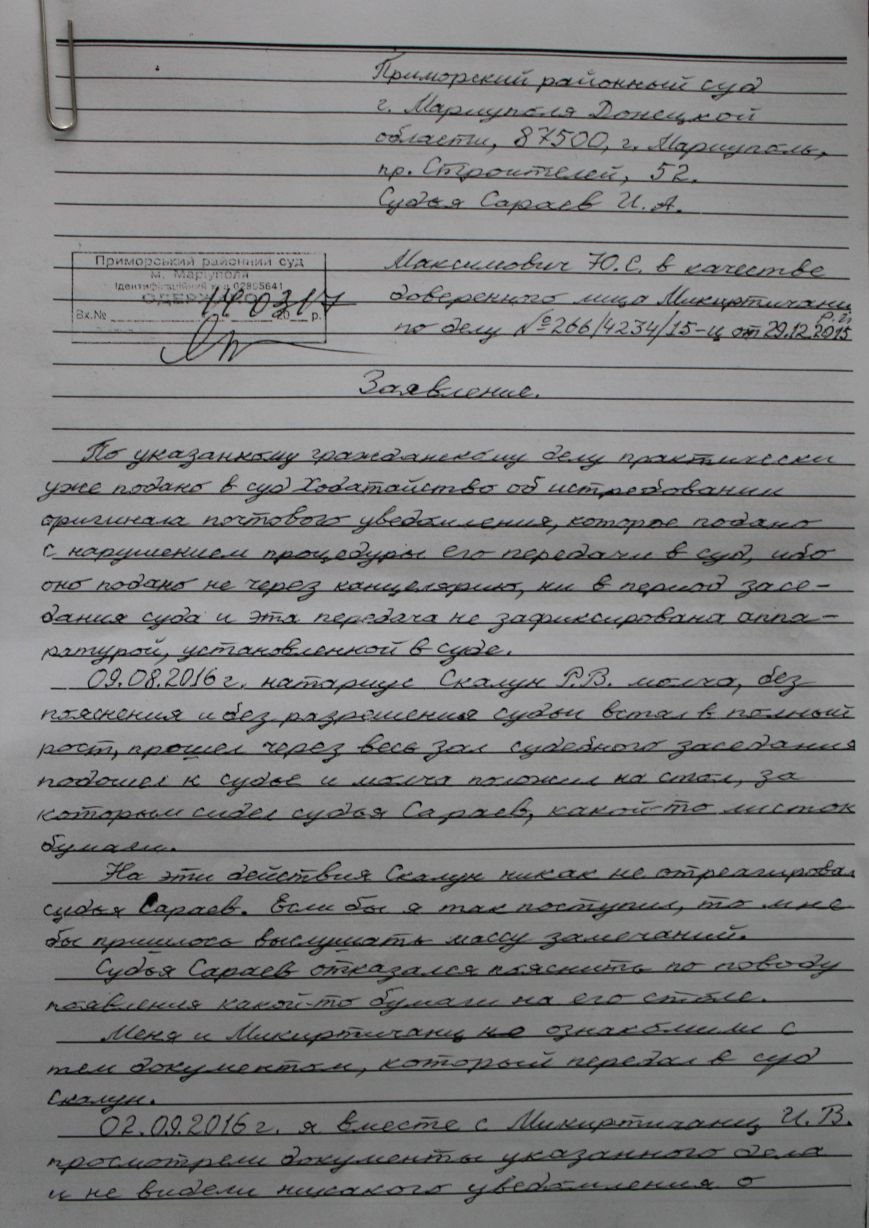 Приморский районный суд
г. Мариуполя Донецкой
области, 87500, г. Мариуполь,
пр. Строителей, 52.
Судья Сараев И. А.
Приморський районний суд
м. Маріуполя
Ідентифікаційний код 02895641
ОДЕРЖАНО
Вх.№ 20 р.
14 03 17
Максимович Ю.С. в качестве
доверенного лица Микиртичанц
по делу №266/4234/15-ц от 29.12.2015
Заявление.
По указанному гражданскому делу практически
уже подано в суд Ходатайство об истребовании
оригинала почтового уведомления, которое подано
с нарушением процедуры его передачи в суд, ибо
оно подано не через канцелярию, ни в период засе-
дания суда и эта передача не зафиксирована аппа-
ратурой, установленной в суде.
09.08.2016 г. натариус Скалун Р.В. молча, без
пояснения и без разрешения судьи встал в полный
рост, прошел через весь зал судебного заседания
подошел к судье и молча положил на стол, за
которым сидел судья Сараев, какой-то листок
бумаги.
На эти действия Скалун никак не отреагировал
судья Сараев. Если бы я так поступил, то мне
бы пришлось выслушать массу замечаний.
Судья Сараев отказался пояснить по поводу
появления какой-то бумаги на его столе.
Меня и Микиртичанц не ознакомили с
тем документом, который передал в суд
Скалун.
02.09.2016 г. я вместе с Микиртичанц И. В.
просмотрели документы указанного дела
и не видели никакого уведомления о